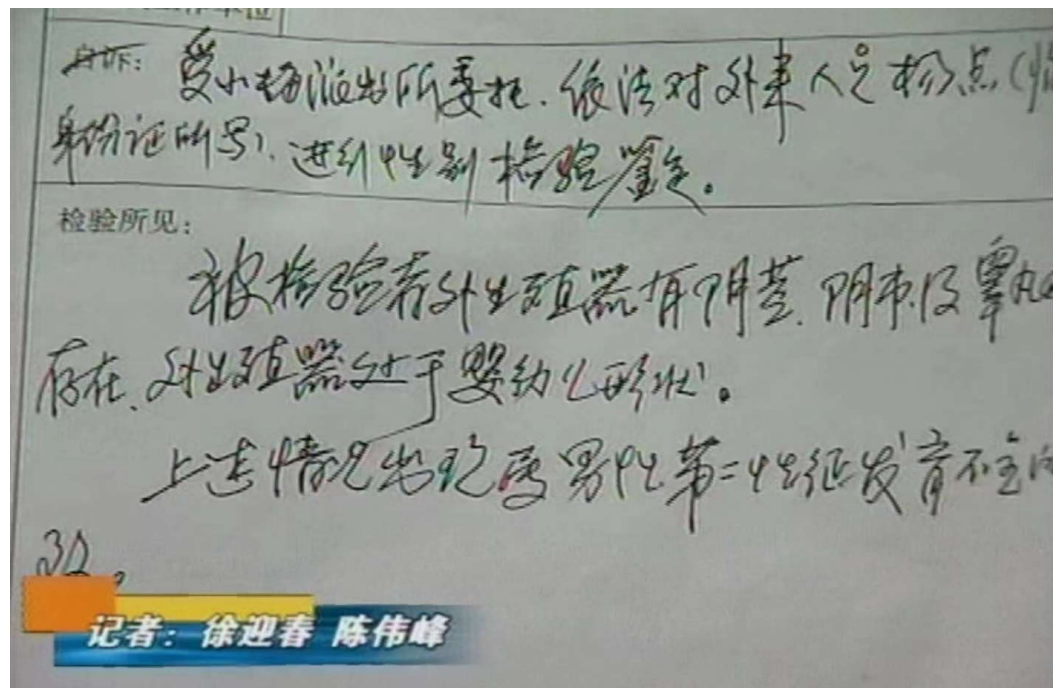 受小梅派出所委托，依法对外来人员杨点(
身份证所号)，进行性别检验鉴定。
检验所见：
被检验者外生殖器有阴茎、阴囊及睾丸
存在，外生殖器处于婴幼儿形状。
上述情况出现 男性第二性征发育不全
记者：徐迎春 陈伟峰